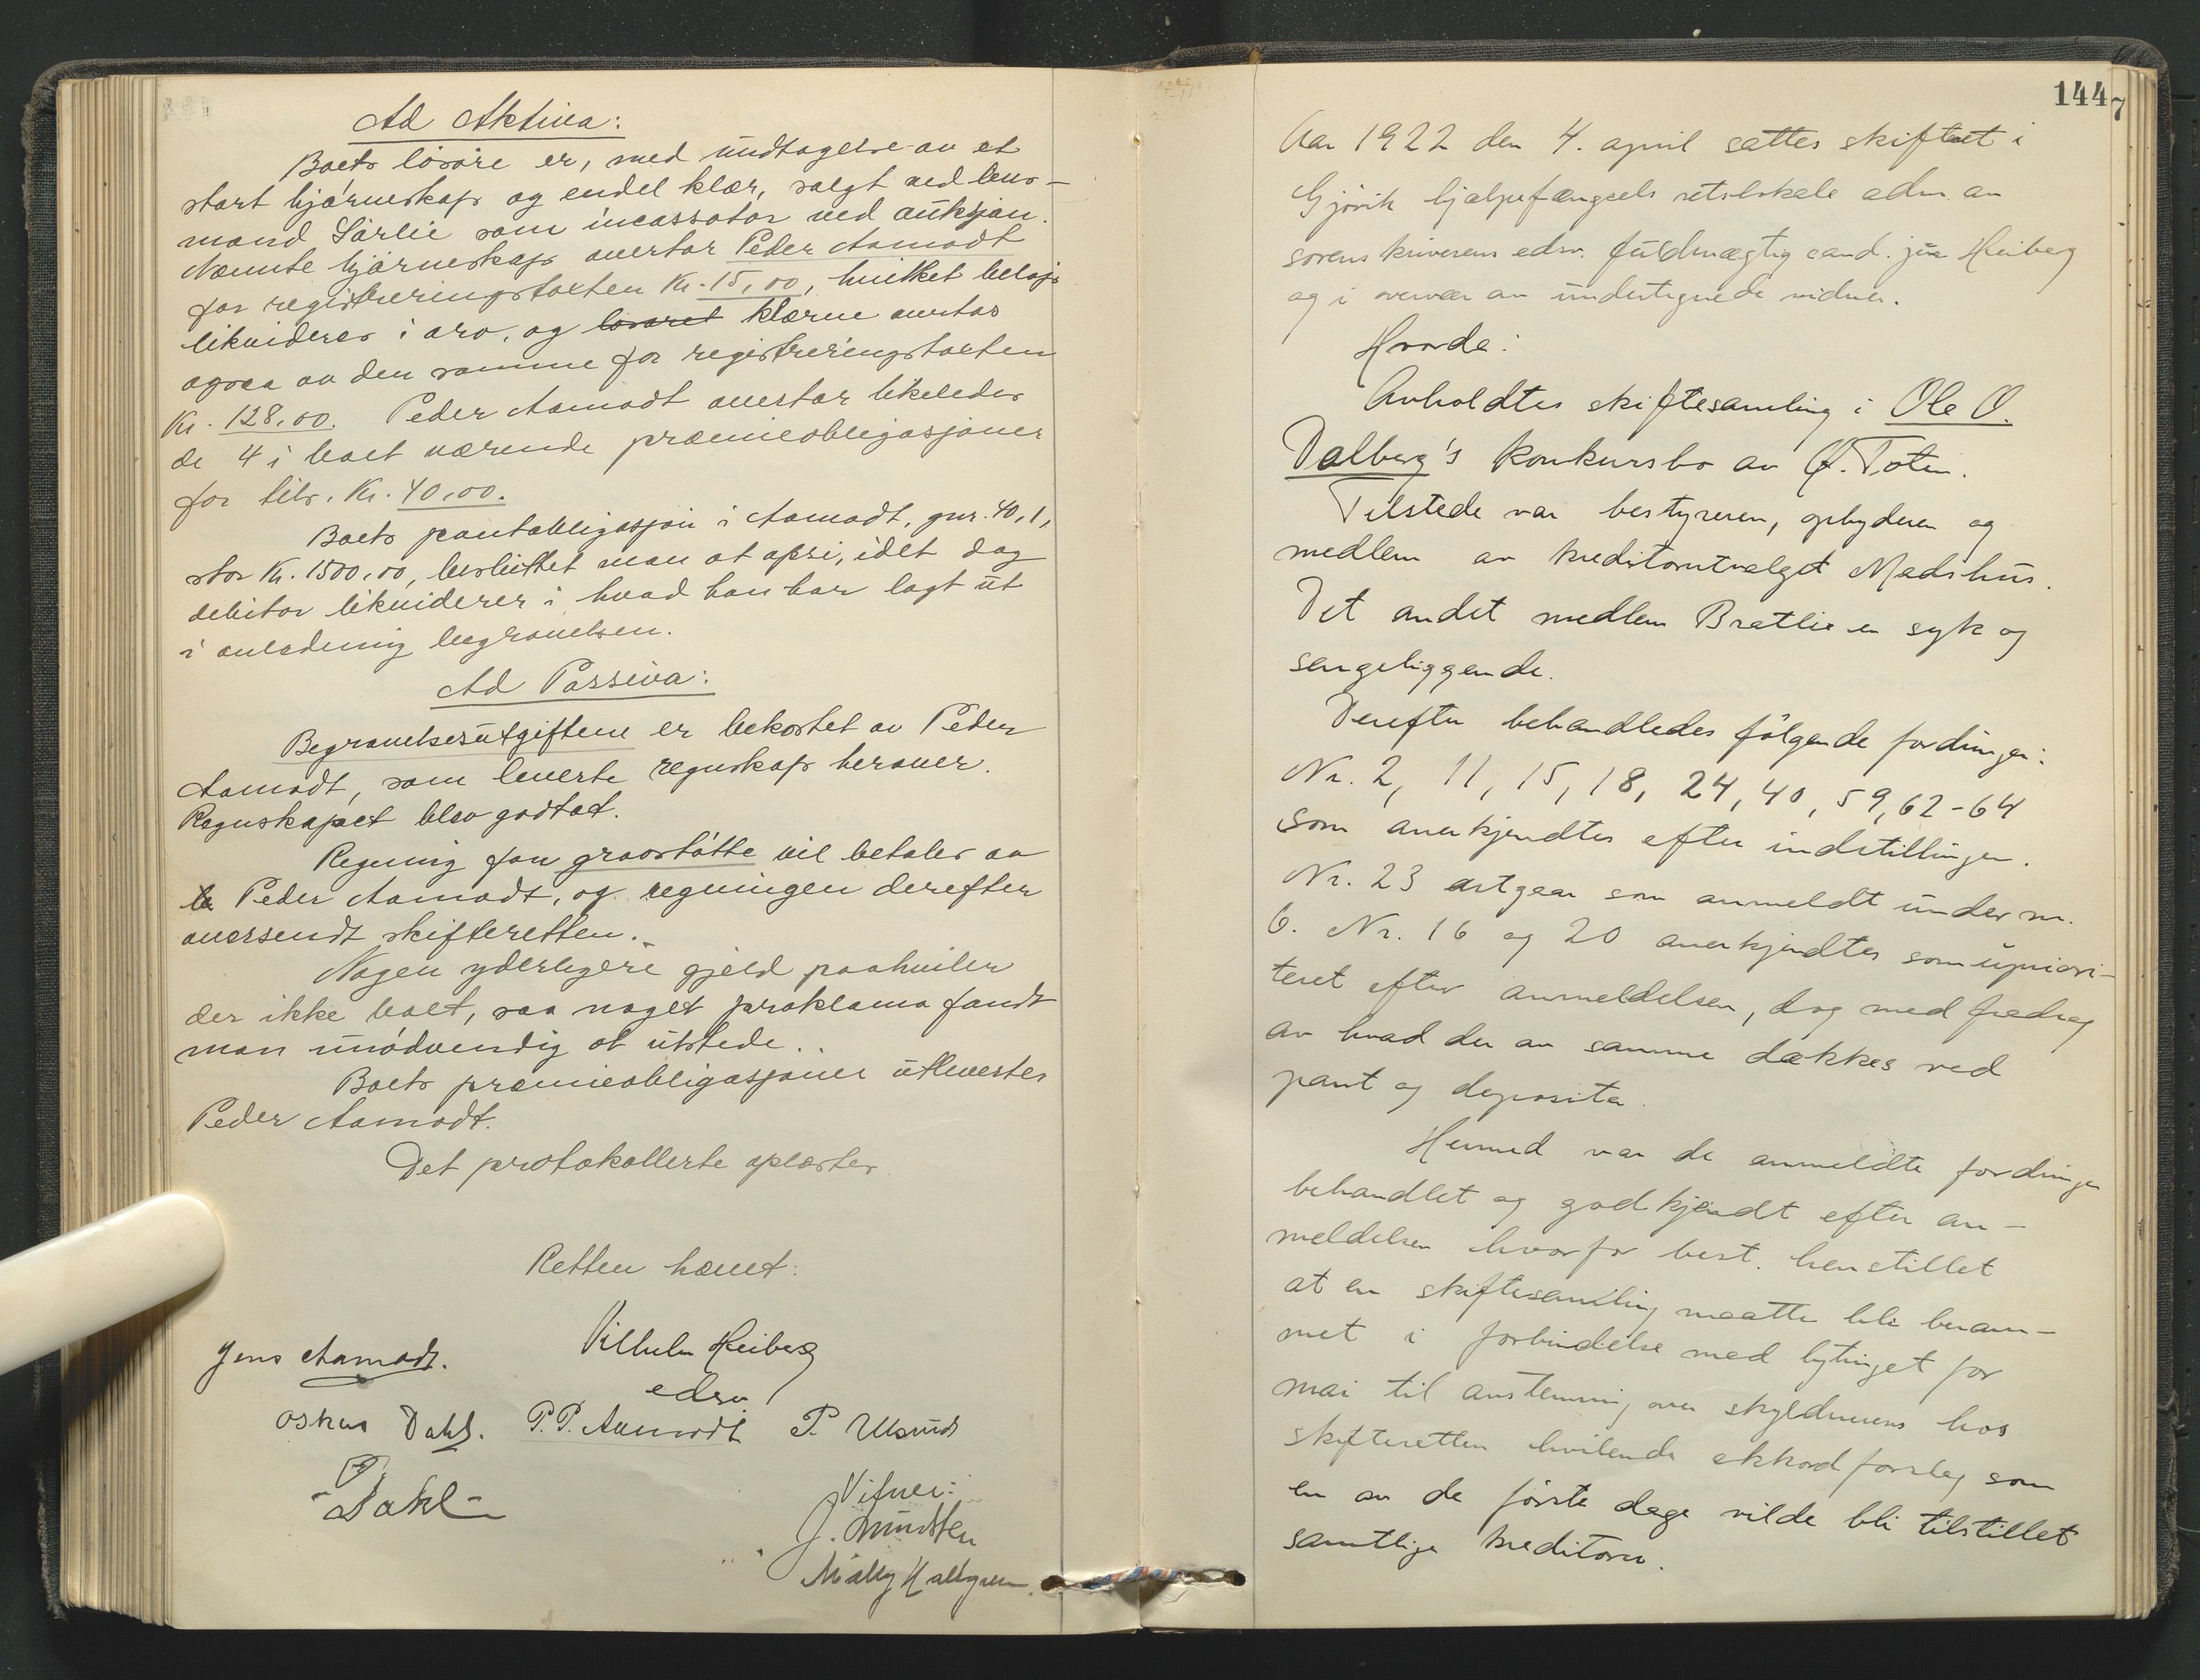 Ad Aktiva:
Boets løsøre er, med undtagelse av et
stort hjørneskap og endel klær, solgt ved lens-
mand Sørlie som incassator ved auksjon.
Nævnte hjørneskap overtar Peder Aamodt
for registreringstaksten Kr. 15,00, hvilket beløp
likvideres i arv, og løsøret klærne overtas
ogsaa av den samme for registreringstaksten
Kr. 128,00. Peder Aamodt overtar likeledes
de 4 i boet værende præmieobligasjoner
for tils. Kr. 40,00.
Boets pantobligasjon i Aamodt, gnr. 40,1,
stor Kr. 1500,00, besluttet man at opsi, idet dog
debitor likviderer i hvad han har lagt ut
i anledning begravelsen.
Ad Passiva:
Begravelsesutgiftene er bekostet av Peder
Aamodt, som leverte regnskap herover.
Regnskapet blev godtat.
Regning for gravstøtte vil betales av
Peder Aamodt, og regningen derefter
oversendt skifteretten.
Nogen yderligere gjeld paahviler
der ikke boet, saa noget proklama fandt
man unødvendig at utstede.
Boets præmieobligasjoner utlevertes
Peder Aamodt.
Det protokollerte oplæstes
Retten hævet:
Vilhelm Heiberg
edsv.
Jens Aamodt.
Oskar Dahl. P.P. Aamodt P.
Dahl
Vitner:
J.
Mally Hallgren
144
7
Aar 1922 den 4. april sattes skifteret i
Gjøvik hjælpefængsels retslokale adm. av
sorenskriverens edsv. fuldmægtig cand. jur Heiberg
og i overvær av undertegnede vidner.
Hvorda:
Avholdtes skiftesamling i Ole O.
Dalberg's konkursbo av Ø. Toten.
Tilstede var bestyreren, opbyderen og
medlem av kreditorutvalget Madshus.
Det andet medlem Bratlie er syk og
sengeliggende.
Derefter behandledes følgende fordringer:
Nr. 2, 11, 15, 18, 24, 40, 59, 62-64
som anerkjendtes efter indstillingen.
Nr. 23 utgaar som anmeldt under nr.
6. Nr. 16 og 20 anerkjendtes som upriori-
teret efter anmeldelsen, dog med fradrag
av hvad der av samme dækkes ved
pant og deposita.
Hermed var de anmeldte fordringer
behandlet og godkjendt efter an-
meldelsen hvorfor best. henstillet
at en skiftesamling maatte bli beram-
met i forbindelse med bytinget for
mai til avstemning over skyldnerens hos
skifteretten hvilende akkordforslag som
en av de første dage vilde bli tilstillet
samtlige kreditorer.